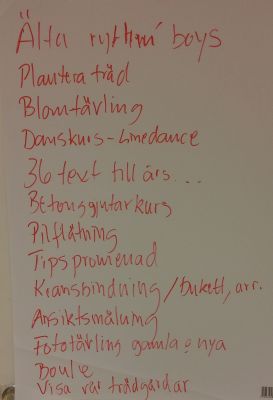 Älta rythm boys
Plantera träd
Blomtävling
Danskurs - Linedance
36 text till års...
Betonggjutarkurs
Pilflätning
Tipspromenad
Kransbindning / bukett, arr.
Ansiktsmålning
Fototävling gamla o nya
Boule
Visa vår trädgårdar